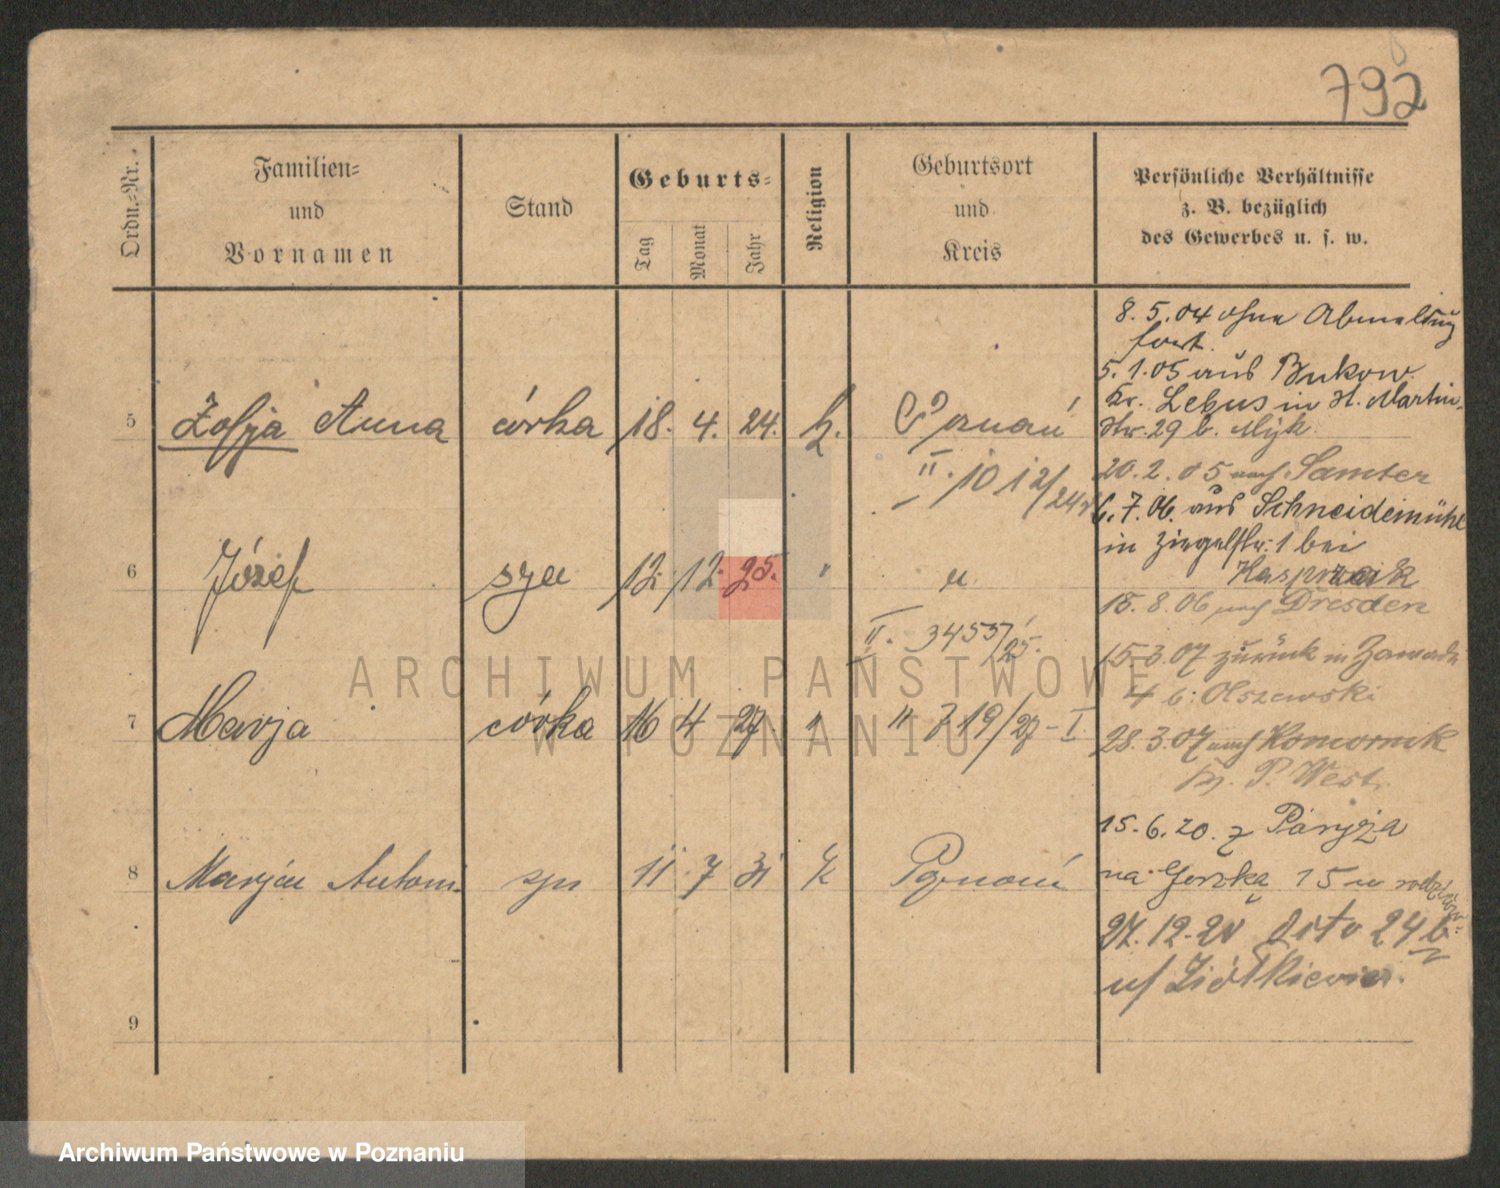 792
Ordn.-Nr.
Familien-
und
Vornamen
Stand
Geburts-
Tag
Monat
Jahr
Religion
Geburtsort
und
Kreis
Persönliche Verhältnisse
z. B. bezüglich
des Gewerbes u. s. w.
5 Zofja Anna córka 18. 4. 24. k. Poznań
II. 10 12/24
6 Józef syn 12. 12. 25. " "
II. 3455/25.
7 Marja córka 16 4 27 " " 719/27 - I
8 Marjan Antoni syn 11 7 31 k Poznań
9
8. 5. 04 ohne Abmeldung
fort.
5. 1. 05 aus Bukow
Kr. Lebus in St. Martin-
str. 29 b. Myk
20. 2. 05 nach Samter
6. 7. 06. aus Schneidemühl
in Ziegelstr. 1 bei
Kasprzak
18. 8. 06 nach Dresden
15. 3. 07 zurück in Zawade
4 b: Olszewski
28. 3. 07 nach Komornik
P. West.
15. 6. 20. z Paryża
na Górką 15 u
27. 12. 20 dito 24 b
u/ Ziółkiewicz.
ARCHIWUM PAŃSTWOWE
W POZNANIU
Archiwum Państwowe w Poznaniu